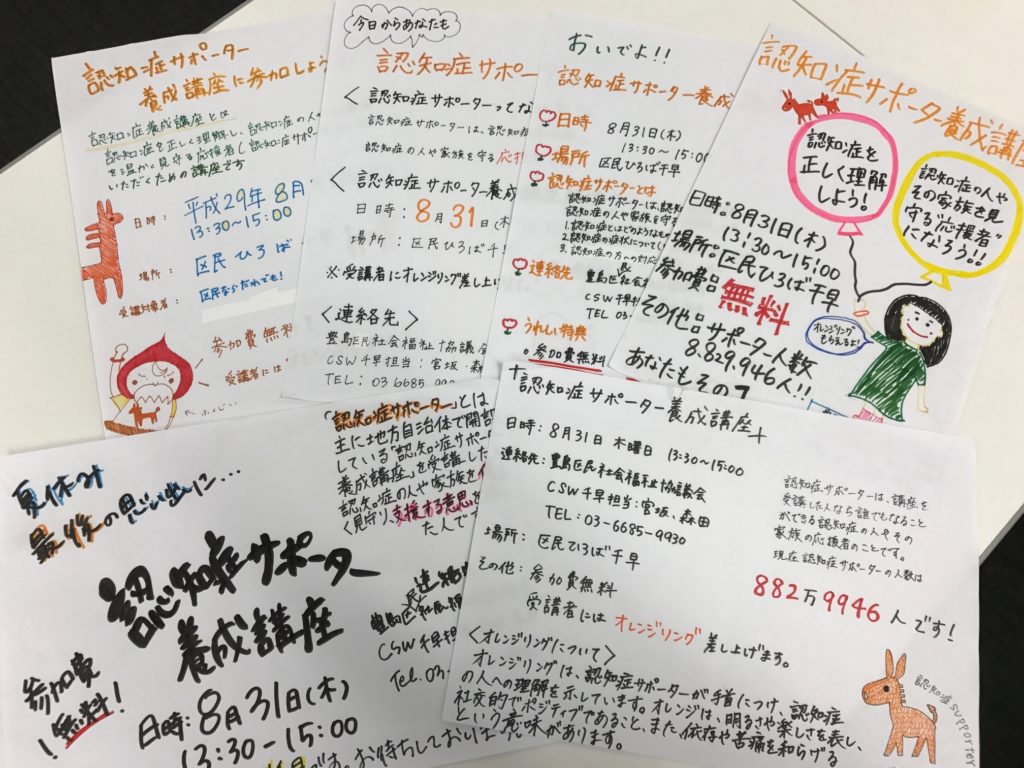 認知症サポーター
養成講座に参加しよう
認知症養成講座とは
認知症を正しく理解し、認知症の人や
を温かく見守る応援者(認知症サポー
いただくための講座です
日時：
平成29年 8月
13:30~15:00
場所：
区民ひろば
受講対象者：
区民ならだれでも!
参加費無料
受講者には
今日からあなたも
認知症サポー
＜認知症サポーターってな
認知症サポーターは、認知症
認知症の人や家族を守る応援
＜認知症サポーター養成
日時：8月31日(木
場所：区民ひろば千
※受講者にオレンジリング差し上
＜連絡先＞
豊島区民社会福祉協議会
CSW千早担当：宮坂、森田
TEL：03 6685-99
おいでよ!!
認知症サポーター養成
日時
8月31日(木)
13:30~15:00
場所
区民ひろば千早
認知症サポーターとは
認知症サポーターは、認知
認知症の人や家族を守る
1.認知症とはどのようなもの
2.認知症の症状について
3.認知症の方への対応
連絡先
豊島区民社会
CSW千早
TEL 03-
うれしい特典
参加費無料
認知症サポータ養成講座
認知症を
正しく理解
しよう!
認知症の人や
その家族を見
守る"応援者"
になろう!!
日時。8月31日(木)
13:30~15:00
場所。区民ひろば千早
参加費 無料
オレンジリング
もらえるよ!
その他 サポーター人数
8.829.946人!!
あなたもその
夏休み
最後の思い出に...
「認知症サポーター」とは
主に地方自治体で開
している「認知症サポータ
養成講座」を受講した
認知症の人や家族を
く見守り、支援する意思を
た人で
認知症サポーター
養成講座
参加費
無料!
連絡
豊島区民社
CSW千早担
Tel.03-
日時：8月31日(木)
13:30-15:00
です。お待ちしており
認知症サポーター養成講座
日時：8月31日 木曜日 13:30~15:00
連絡先：豊島区民社会福祉協議会
CSW千早担当：宮坂、森田
TEL：03-6685-9930
場所： 区民ひろば千早
その他： 参加費無料
受講者にはオレンジリング差し上げます。
認知症サポーターは、講座を
受講した人なら誰でもなること
ができる認知症の人やその
家族の応援者のことです。
現在認知症サポーターの人数は
882万9946人です!
＜オレンジリングについて＞
オレンジリングは、認知症サポーターが手首につけ、認知症
の人への理解を示しています。オレンジは、明るさや楽しさを表し、
社交的でポジティブであること、また依存や苦痛を和らげる
という意味があります。
認知症supporter